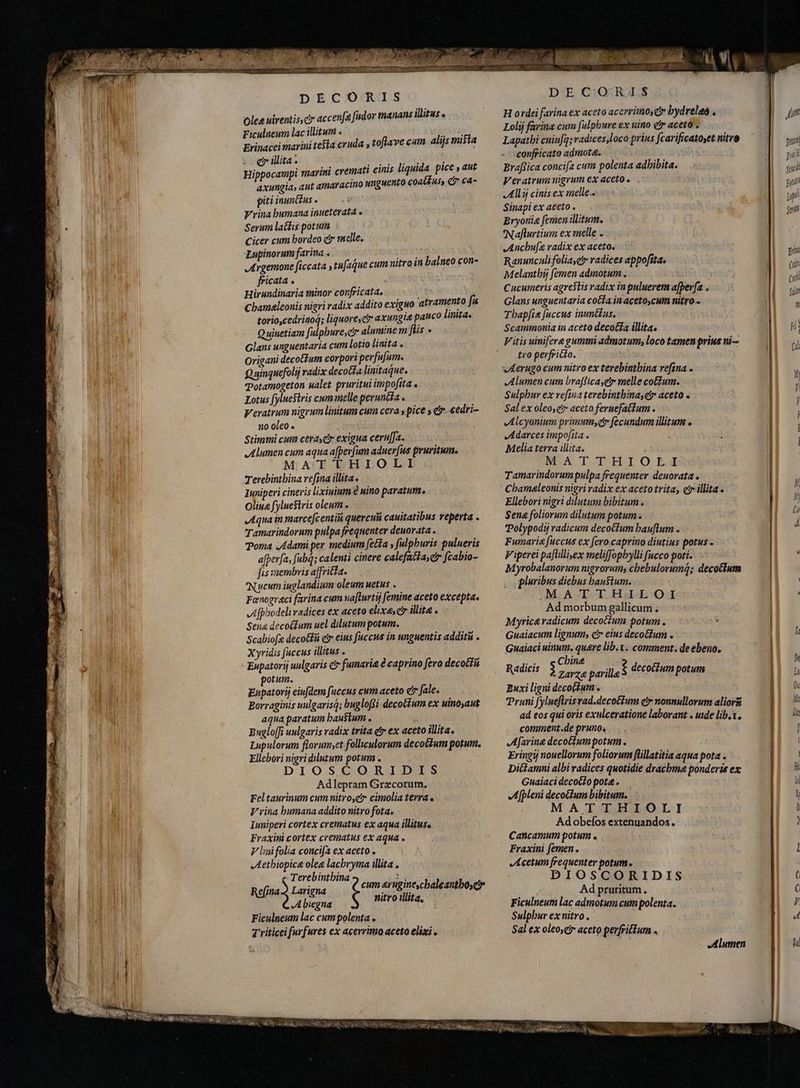 DECORIS
Oleæ uirentis,& accensæ sudor manans illitus.
Ficulneum lac illitum.
Erinacei marini testa cruda, tostave cum alijs mista
& illita.
Hippocampi marini cremati cinis liquida pice, aut
axungia, aut amaracino unguento coactus, & ca-
piti inunctus.
Vrina humana inueterata.
Serum lactis potum
Cicer cum hordeo & melle.
Lupinorum farina.
Argemone siccata, tusaque cum nitro in balneo con-
fricata.
Hirundinaria minor confricata.
Chamæleonis nigri radix addito exiguo atramento su
torio,cedrinoq; liquore,& axungiæ pauco linita.
Quinetiam sulphure,& alumine mistis.
Glans unguentaria cum lotio linita.
Origani decoctum corpori perfusum.
Quinquefolij radix decocta linitaque.
Potamogeton ualet pruritui imposita.
Lotus syluestris cum melle peruncta.
Veratrum nigrum linitum cum cera, pice, & cedri-
no oleo.
Stimmi cum cera,& exigua cerussa.
Alumen cum aqua aspersum aduersus pruritum.
MATTHIOLI
Terebinthina resina illita.
Iuniperi cineris lixiuium è uino paratum.
Oliuæ syluestris oleum.
Aqua in marcescentiũ quercuũ cauitatibus reperta.
Tamarindorum pulpa frequenter deuorata.
Poma Adami per medium secta, sulphuris pulueris
aspersa, subq; calenti cinere calefacta,& scabio-
sis membris affricta.
Nucum iuglandium oleum uetus.
Fœnogræci farina cum nasturtij semine aceto excepta.
Asphodeli radices ex aceto elixæ,& illitæ.
Senæ decoctum uel dilutum potum.
Scabiosæ decoctũ & eius succus in unguentis additũ.
Xyridis succus illitus.
Eupatorij uulgaris & fumariæ è caprino sero decoctũ
potum.
Eupatorij eiusdem succus cum aceto & sale.
Borraginis uulgarisq; buglossi decoctum ex uino,aut
aqua paratum haustum.
Buglossi uulgaris radix trita & ex aceto illita.
Lupulorum florum,et folliculorum decoctum potum.
Ellebori nigri dilutum potum.
DIOSCORIDIS
Ad lepram Græcorum.
Fel taurinum cum nitro,& cimolia terra.
Vrina humana addito nitro fota.
Iuniperi cortex crematus ex aqua illitus.
Fraxini cortex crematus ex aqua.
Vlmi folia concisa ex aceto.
Aethiopicæ oleæ lachryma illita.
Resina { Terebinthina Larigna Abiegna } cum ærugine,chalcantho,& nitro illita.
Ficulneum lac cum polenta.
Triticei furfures ex acerrimo aceto elixi.
DECORIS
Hordei farina ex aceto acerrimo,& hydrelæo.
Lolij farina cum sulphure ex uino & aceto.
Lapathi cuiusq; radices,loco prius scarificato,et nitro
confricato admotæ.
Brassica concisa cum polenta adhibita.
Veratrum nigrum ex aceto.
Allij cinis ex melle.
Sinapi ex aceto.
Bryoniæ semen illitum.
Nasturtium ex melle.
Anchusæ radix ex aceto.
Ranunculi folia,& radices appositæ.
Melanthij semen admotum.
Cucumeris agrestis radix in puluerem aspersa.
Glans unguentaria cocta in aceto,cum nitro.
Thapsiæ succus inunctus.
Scammonia in aceto decocta illita.
Vitis uiniferæ gummi admotum, loco tamen prius ni-
tro perfricto.
Aerugo cum nitro ex terebinthina resina.
Alumen cum brassica,& melle coctum.
Sulphur ex resina terebinthina,& aceto.
Sal ex oleo,& aceto feruefactum.
Alcyonium primum,& secundum illitum.
Adarces imposita.
Melia terra illita.
MATTHIOLI
Tamarindorum pulpa frequenter deuorata.
Chamæleonis nigri radix ex aceto trita, & illita.
Ellebori nigri dilutum bibitum.
Senæ foliorum dilutum potum.
Polypodij radicum decoctum haustum.
Fumariæ succus ex sero caprino diutius potus.
Viperei pastilli,ex melissophylli succo poti.
Myrobalanorum nigrorum, chebulorumq; decoctum
pluribus diebus haustum.
MATTHILOI
Ad morbum gallicum.
Myricæ radicum decoctum potum.
Guaiacum lignum, & eius decoctum.
Guaiaci uinum. quære lib.1. comment. de ebeno.
Radicis { Chinæ Zarzæ parillæ } decoctum potum
Buxi ligni decoctum.
Pruni syluestris rad.decoctum & nonnullorum aliorũ
ad eos qui oris exulceratione laborant. uide lib.1.
comment.de pruno.
Asarinæ decoctum potum.
Eringij nouellorum foliorum stillatitia aqua pota.
Dictamni albi radices quotidie drachmæ ponderis ex
Guaiaci decocto potæ.
Aspleni decoctum bibitum.
MATTHIOLI
Ad obesos extenuandos.
Cancamum potum.
Fraxini semen.
Acetum frequenter potum.
DIOSCORIDIS
Ad pruritum.
Ficulneum lac admotum cum polenta.
Sulphur ex nitro.
Sal ex oleo,& aceto perfrictum.
Alumen